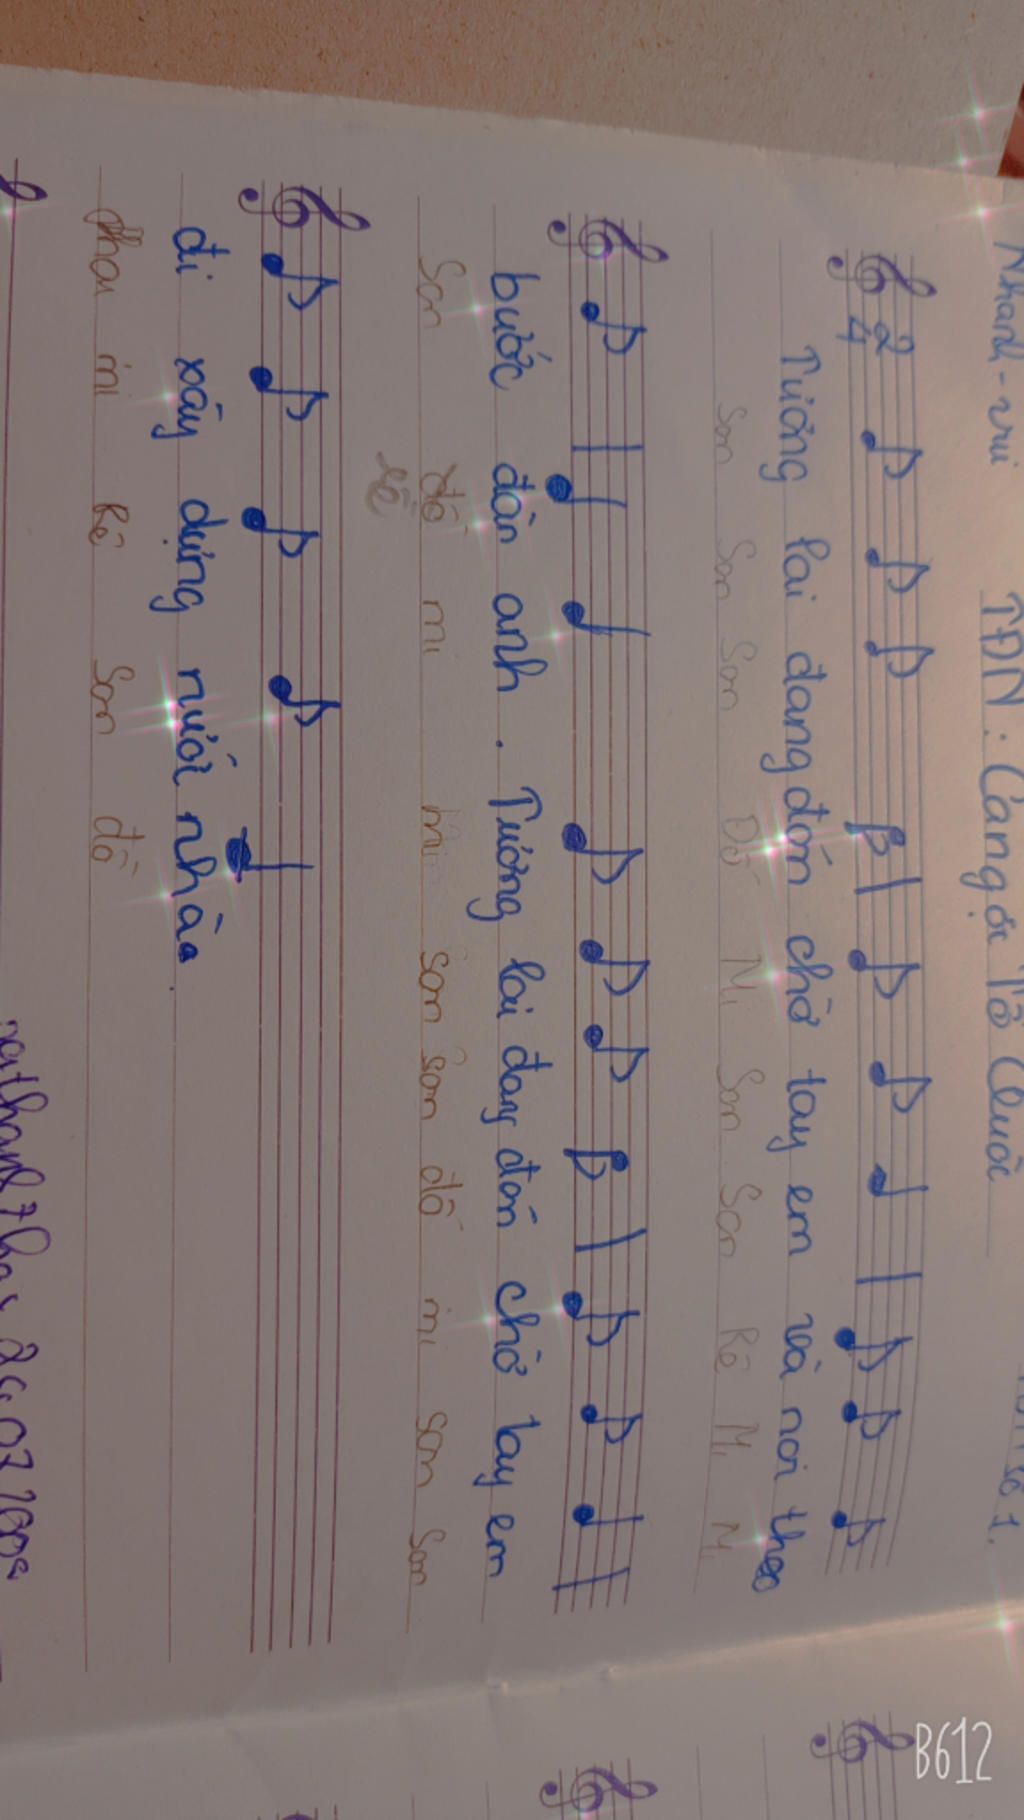 Nhanh - vui
TĐN: Ca ngợi Tổ Quốc
số 1.
2
4
Tương lai đang đón chờ tay em và nơi theo
Son Son Son Đố Mi Son Son Rê Mi Mi
bước đàn anh. Tương lai đang đón chờ tay em
Son đô mi mi son son đố mi son son
Rê
đi xây dựng nước nhà.
Pha mi Rê Son đô
B612